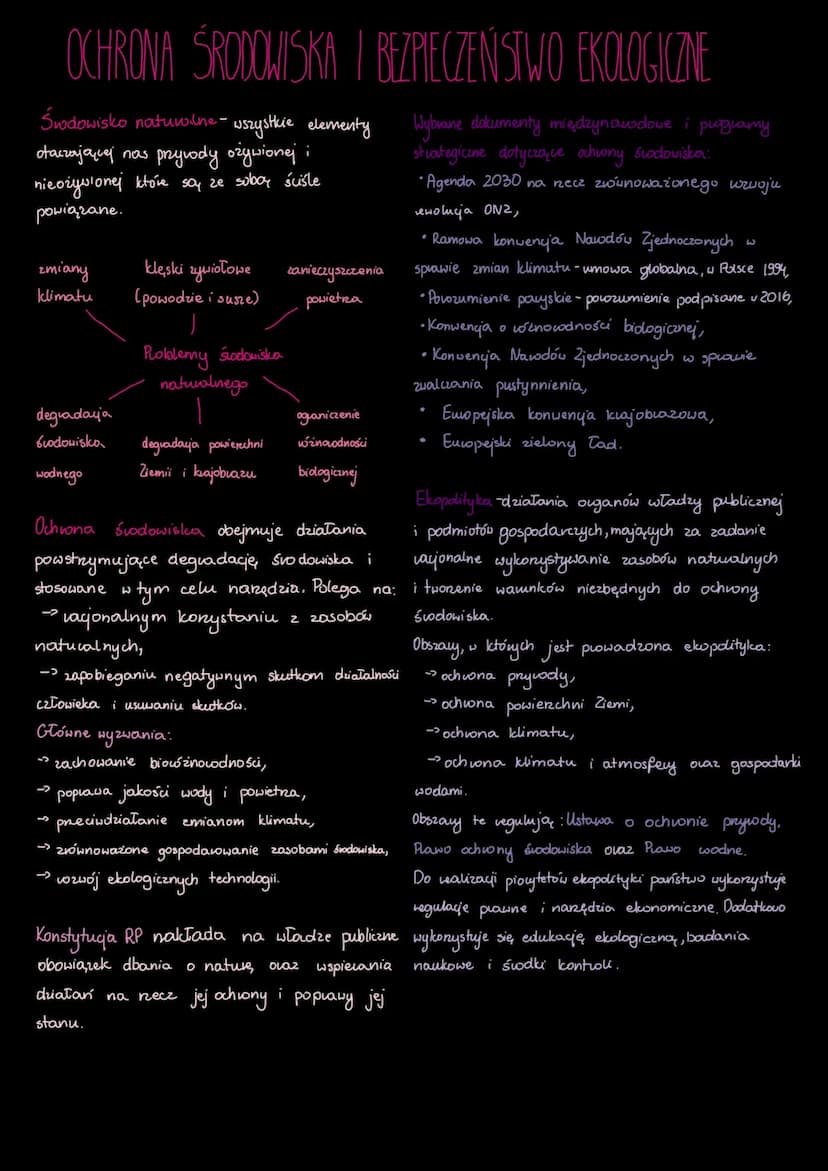 OCHRONA ŚRODOWISKA I BEZPIECZEŃSTWO EKOLOGICZNE
Środowisko naturalne - wszystkie elementy
otaczającej nas przyrody ożywionej i
nieożywionej które są ze sobą ściśle
powiązane.
zmiany klęski żywiołowe zanieczyszczenia
klimatu (powodzie i susze) powietrza
Problemy środowiska
naturalnego
degradacja ograniczenie
środowiska degradacja powierzchni różnorodności
wodnego Ziemii i krajobrazu biologicznej
Ochrona środowiska obejmuje działania
powstrzymujące degradację środowiska i
stosowane w tym celu narzędzia. Polega na:
→ racjonalnym korzystaniu z zasobów
naturalnych,
→ zapobieganiu negatywnym skutkom działalności
człowieka i usuwaniu skutków.
Główne wyzwania:
→ zachowanie bioróżnorodności,
→ poprawa jakości wody i powietrza,
→ przeciwdziałanie zmianom klimatu,
→ zrównoważone gospodarowanie zasobami środowiska,
→ rozwój ekologicznych technologii.
Konstytucja RP nakłada na władze publiczne
obowiązek dbania o naturę oraz wspierania
działań na rzecz jej ochrony i poprawy jej
stanu.
Wybrane dokumenty międzynarodowe i programy
strategiczne dotyczące ochrony środowiska:
• Agenda 2030 na rzecz zrównoważonego rozwoju
rezolucja ONZ,
• Ramowa konwencja Narodów Zjednoczonych w
sprawie zmian klimatu - umowa globalna, w Polsce 1994,
• Porozumienie paryskie - porozumienie podpisane w 2016,
• Konwencja o różnorodności biologicznej,
• Konwencja Narodów Zjednoczonych w sprawie
zwalczania pustynnienia,
• Europejska konwencja krajobrazowa,
• Europejski zielony Ład.
Ekopolityka - działania organów władzy publicznej
i podmiotów gospodarczych, mających za zadanie
racjonalne wykorzystywanie zasobów naturalnych
i tworzenie warunków niezbędnych do ochrony
środowiska.
Obszary, w których jest prowadzona ekopolityka:
→ ochrona przyrody,
→ ochrona powierzchni Ziemi,
→ ochrona klimatu,
→ ochrona klimatu i atmosfery oraz gospodarki
wodami.
Obszary te regulują: Ustawa o ochronie przyrody,
Prawo ochrony środowiska oraz Prawo wodne.
Do realizacji priorytetów ekopolityki państwo wykorzystuje
regulacje prawne i narzędzia ekonomiczne. Dodatkowo
wykorzystuje się edukację ekologiczną, badania
naukowe i środki kontroli.